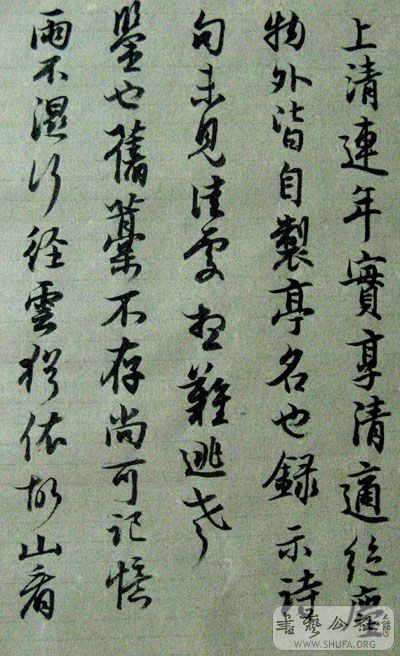 上清連年實享清適絶
物外皆自製亭名也録示詩
句未見佳處想難逃老
鑒也舊藁不存尚可記憶
雨不濕行徑雲猶依故山看
書藝公社
WWW.SHUFA.ORG